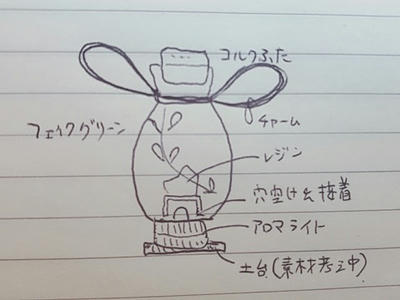 コルクふた
フェイクグリーン
チャーム
レジン
穴空け&接着
アロマライト
土台(素材考え中)